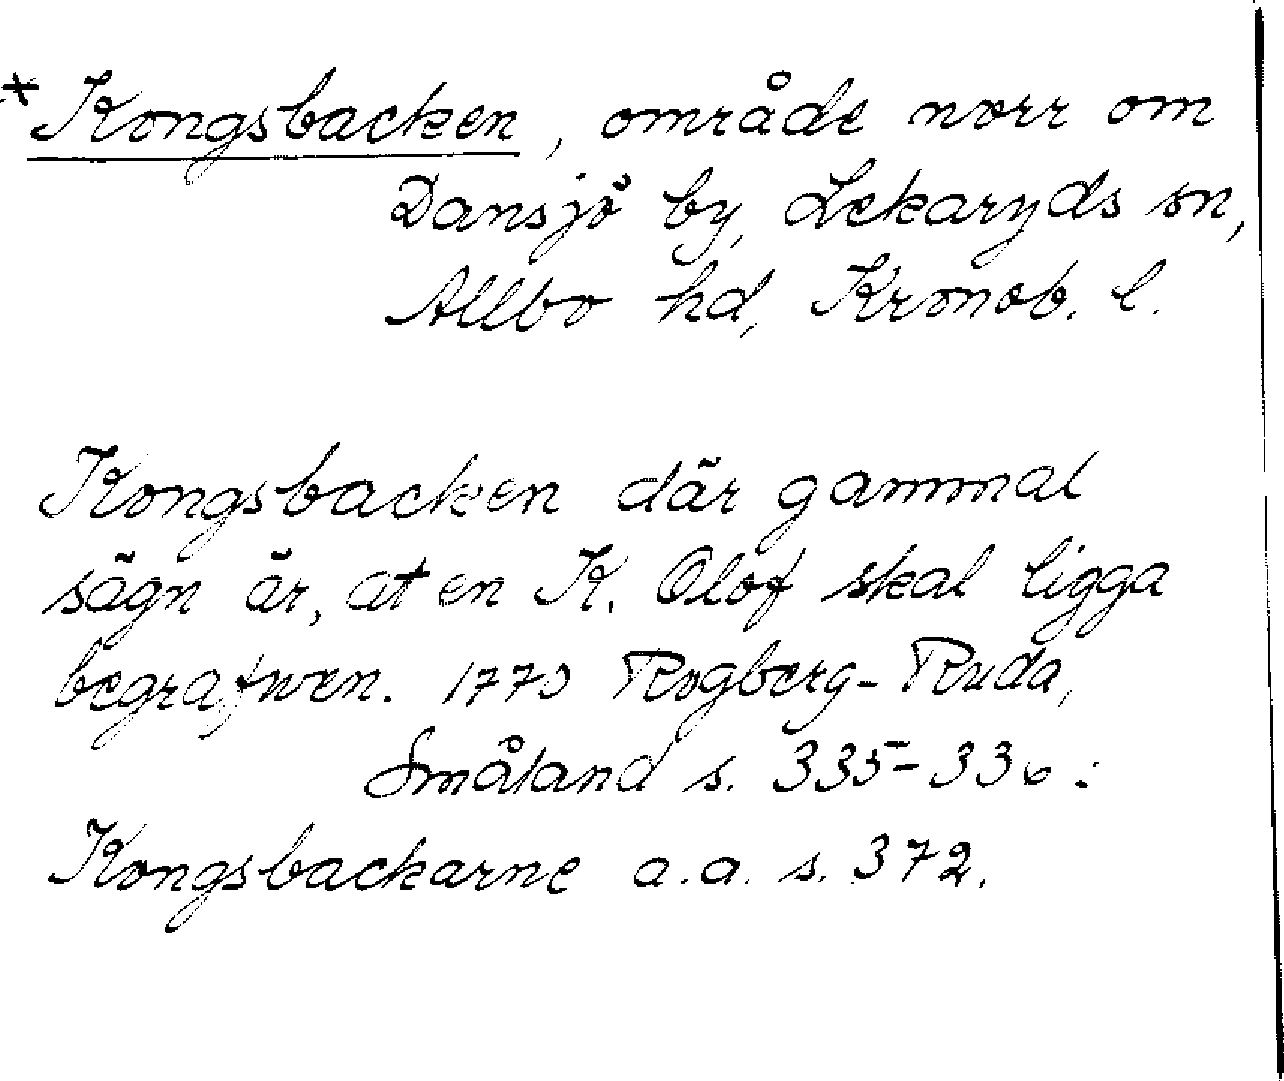 * Kongsbacken, område norr om
Dansjö by, Lekaryds sn,
Allbo hd, Kronob. l.
Kongsbacken där gammal
sägn är, at en K. Olof skal ligga
begrafwen. 1770 Rogberg-Ruda,
Småland s. 335-336:
Kongsbackarne a.a. s. 372.